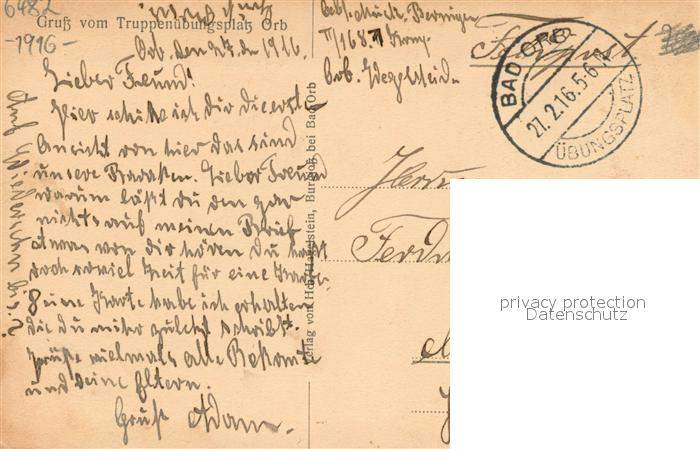 6482
-1916-
Gruß vom Truppenübungsplatz Orb
Orb, den 27. 2. 1916.
Lieber Freund!
Hier schicke ich dir die erste
Ansicht von hier das sind
unsere Baraken. Lieber Freund
warum läßt du den gar
nichts auf meinen Brief
etwas von dir hören du hast
doch soviel Zeit für eine Karte.
Deine Karte habe ich erhalten
die du mir zuletzt schriebst.
Grüße vielmals alle Bekannte
und deine Eltern.
Gruß Adam.
Auf Wiedersehen
Verlag von Hof-Hagelstein, Burgjoß bei Bad Orb
Orb. Wegscheide
Feldpost
BAD ORB
27.2.16.5-6
ÜBUNGSPLATZ
Herrn
Ferd
privacy protection
Datenschutz